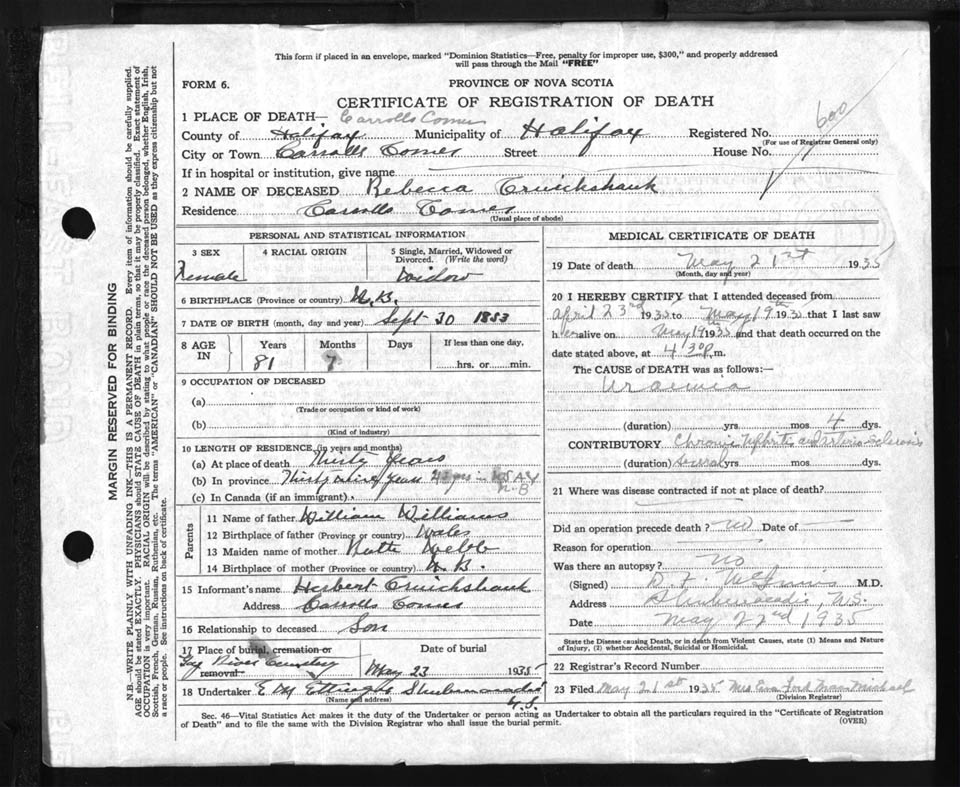 This form if placed in an envelope, marked "Dominion Statistics—Free, penalty for improper use, $300," and properly addressed
will pass through the Mail "FREE"
FORM 6.
PROVINCE OF NOVA SCOTIA
CERTIFICATE OF REGISTRATION OF DEATH
600
1 PLACE OF DEATH— Carrolls Corner
County of Halifax Municipality of Halifax Registered No.
(For use of Registrar General only)
City or Town Carrolls Corner Street House No.
If in hospital or institution, give name
2 NAME OF DECEASED Rebecca Cruickshank
Residence Carrolls Corner
(Usual place of abode)
PERSONAL AND STATISTICAL INFORMATION
3 SEX 4 RACIAL ORIGIN 5 Single, Married, Widowed or
Divorced. (Write the word)
Female Widow
6 BIRTHPLACE (Province or country) N.B.
7 DATE OF BIRTH (month, day and year) Sept 30 1853
8 AGE IN Years Months Days If less than one day,
81 7 hrs. or min.
9 OCCUPATION OF DECEASED
(a)
(Trade or occupation or kind of work)
(b)
(Kind of industry)
10 LENGTH OF RESIDENCE (in years and months)
(a) At place of death Thirty Years
(b) In province Thirty Years N.B
(c) In Canada (if an immigrant)
Parents
11 Name of father William Williams
12 Birthplace of father (Province or country) Wales
13 Maiden name of mother Ruth Webb
14 Birthplace of mother (Province or country) N.B.
15 Informant's name Herbert Cruickshank
Address Carrolls Corner
16 Relationship to deceased Son
17 Place of burial, cremation or
removal Date of burial
Gay River Cemetery May 23 1935
18 Undertaker E M Ettinger Shubenacadie
(Name and address) N.S.
MEDICAL CERTIFICATE OF DEATH
19 Date of death May 21st 1935
(Month, day and year)
20 I HEREBY CERTIFY that I attended deceased from
April 23rd 1935 to May 19th 1935 that I last saw
her alive on May 19th 1935 and that death occurred on the
date stated above, at 4 30 p.m.
The CAUSE of DEATH was as follows:—
Uraemia
(duration) yrs. mos. 4 dys.
CONTRIBUTORY Chronic Nephritis Arterio Sclerosis
(duration) several yrs. mos. dys.
21 Where was disease contracted if not at place of death?
Did an operation precede death? no Date of
Reason for operation
Was there an autopsy? no
(Signed) D. F. McInnis M.D.
Address Shubenacadie, N.S.
Date May 22nd 1935
State the Disease causing Death, or in death from Violent Causes, state (1) Means and Nature
of Injury, (2) whether Accidental, Suicidal or Homicidal.
22 Registrar's Record Number
23 Filed May 21st 1935 Mrs Eva MacMichael
(Division Registrar)
Sec. 46—Vital Statistics Act makes it the duty of the Undertaker or person acting as Undertaker to obtain all the particulars required in the "Certificate of Registration
of Death" and to file the same with the Division Registrar who shall issue the burial permit.
(OVER)
MARGIN RESERVED FOR BINDING
N.B.—WRITE PLAINLY WITH UNFADING INK—THIS IS A PERMANENT RECORD. Every item of information should be carefully supplied.
AGE should be stated EXACTLY. PHYSICIANS should STATE CAUSE OF DEATH in plain terms, so that it may be properly classified. Exact statement of
OCCUPATION is very important. RACIAL ORIGIN will be described by stating to what people or race the deceased person belonged, whether English, Irish,
Scottish, French, German, Russian, Ruthenian, etc. The terms "AMERICAN" or "CANADIAN" SHOULD NOT BE USED as they express citizenship but not
a race or people. See instructions on back of certificate.